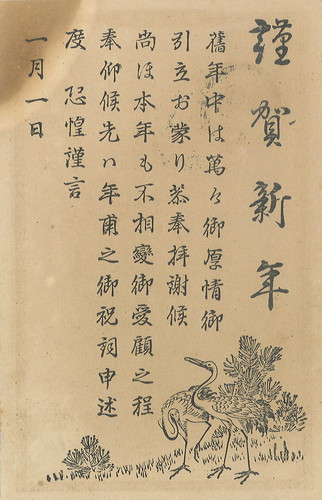 謹賀新年
舊年中は萬々御厚情御
引立お蒙り恭奉拝謝候
尚ほ本年も不相變御愛顧之程
奉仰候先ハ年甫之御祝詞申述
度 恐惶謹言
一月一日